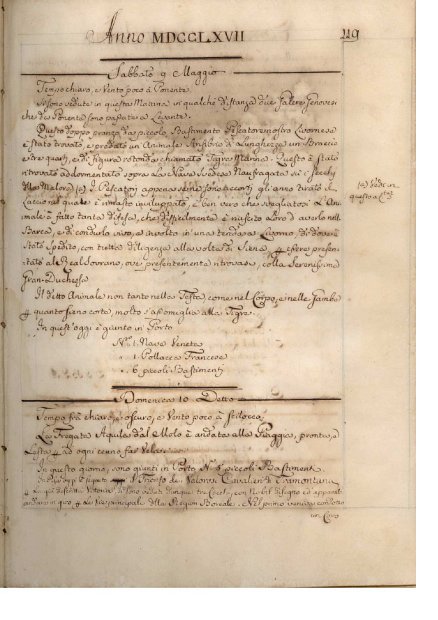 Anno MDCCLXVII
119
Sabbato 9 Maggio
Tempo chiaro, e Vento poco à Ponente.
Si sono vedute in questa Mattina in qualche distanza due Galere Genovesi
che da Ponente sono passate a Levante.
Questo doppo pranzo da piccolo Bastimento Pescatore nostro Livornese
è stato trovato, e predato un Animale Anfibio di Lunghezza un Braccio
e tre quarti, e di figura rotonda chiamato Tigre Marina. Questo è stato
trovato addormentato sopra La Nave Svedese Naufragata ai
della Meloria (a) I Pescatori appena se ne sono accorti gli anno tirato il
Laccio nel quale è rimasto inviluppato, è ben vero che svegliatosi L'Ani-
male à fatto tanta difesa, che difficilmente è riuscito Loro d'averlo nella
Barca, e di condurlo vivo, e involto in una tenda a Livorno, di dove è
stato spedito, con tutta diligenza alla volta di Siena p essere presen-
tato al Real Sovrano, ove presentemente ritrovasi, colla Serenissima
Gran-Duchessa
Il detto Animale non tanto nella Testa, come nel Corpo, e nelle Gambe
quantosieno corte, molto s'assomiglia alla Tigre.
In quest'oggi è giunto in Porto
N.º 1. Nave Veneta
" 1. Pollacca Francese
" 6 piccoli Bastimenti
(a) Vedi in
questo a C.
Domenica 10 Detto
Tempo frà chiaro, e oscuro, e Vento poco à Scilocco.
La Fregata Aquila dal Molo è andata alla Piaggia, pronta, e
Lesta p ad ogni cenno far Vela.
In questo giorno, sono giunti in Porto N.º 5 piccoli Bastimenti
il Trionfo de' Valorosi Cavalieri di Tramontana
Vittoria, si sono veduti Cinque tre Cocchi, con Nobil Disegno ed apparati
andavano in giro, p Le Vie principali della Region Boreale. Nel primo veniva condotto
un Coro